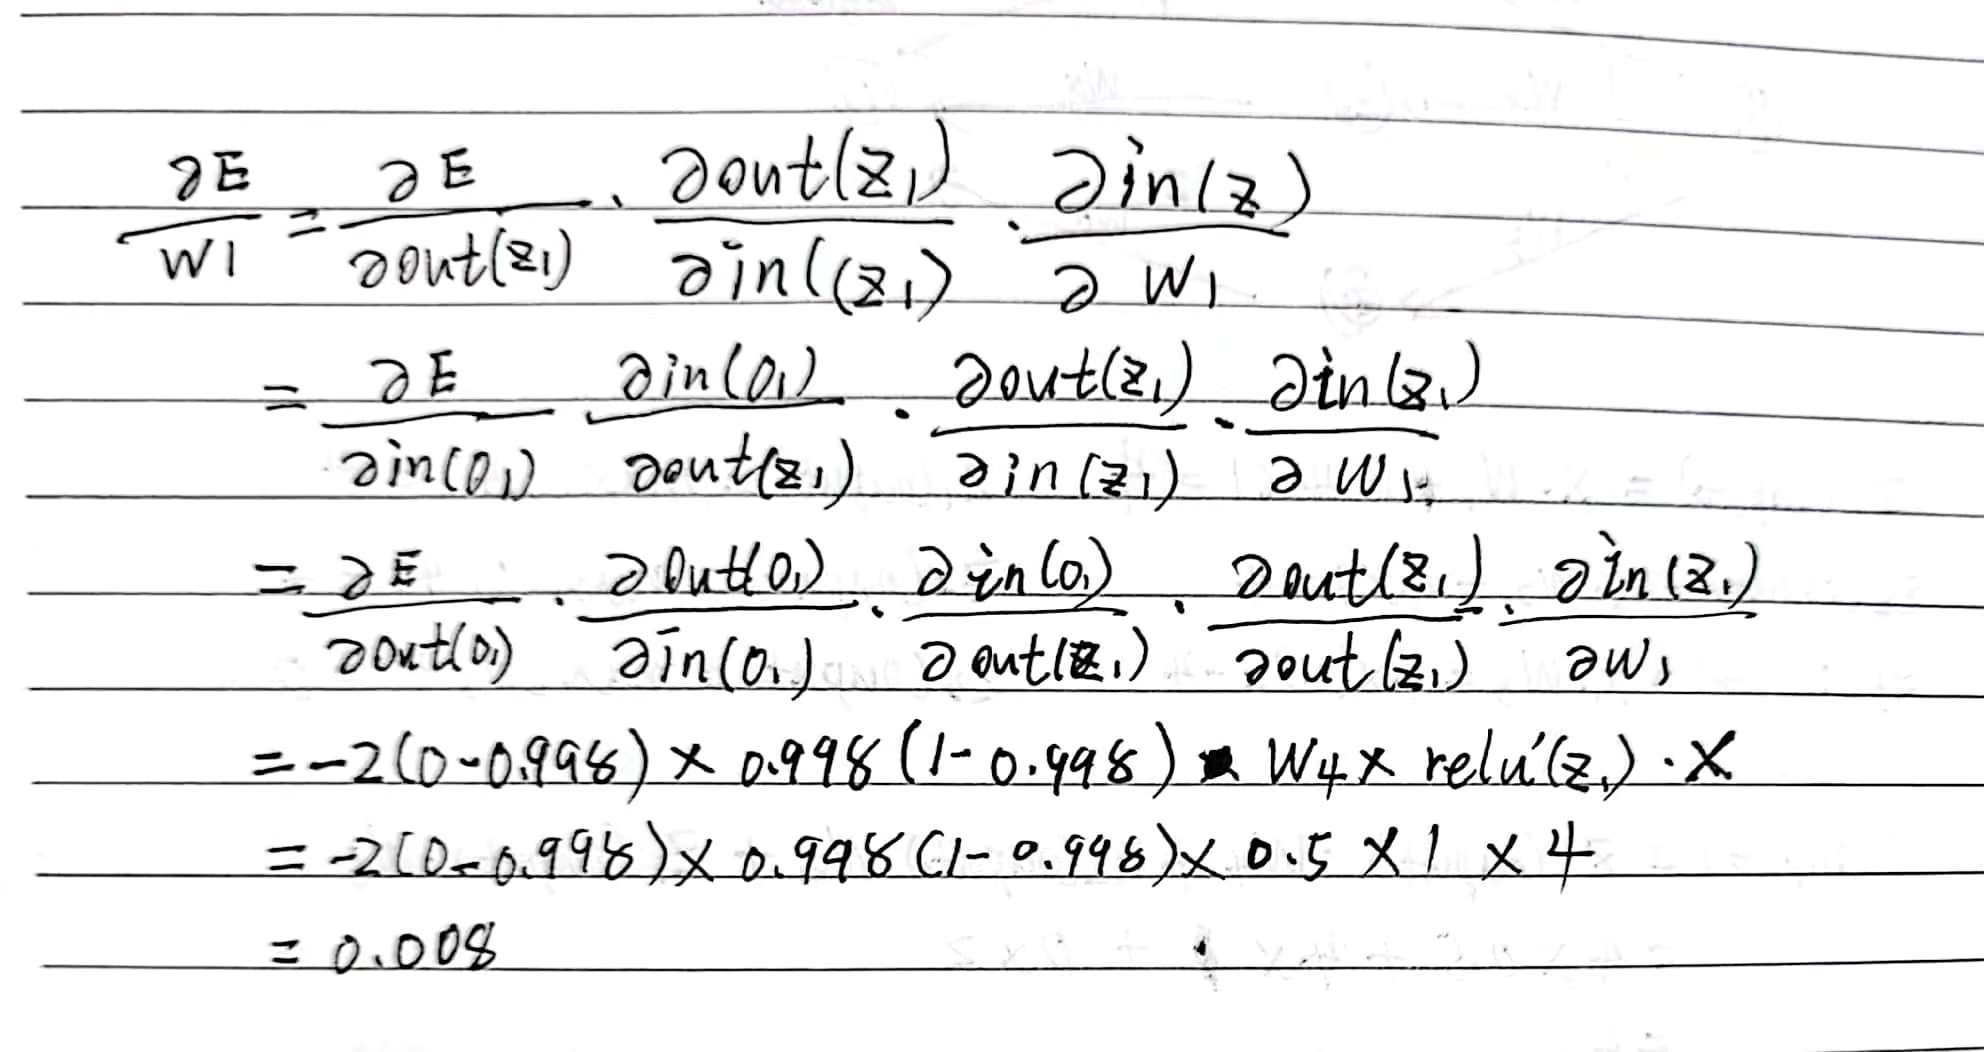 ∂E/W1 = ∂E/∂out(z₁) · ∂out(z₁)/∂in((z₁) · ∂in(z)/∂W₁
= ∂E/∂in(0₁) ∂in(0₁)/∂out(z₁) · ∂out(z₁)/∂in(z₁) · ∂in(z₁)/∂W₁
= ∂E/∂out(0₁) · ∂out(0₁)/∂in(0₁) · ∂in(0₁)/∂out(z₁) · ∂out(z₁)/∂out(z₁) · ∂in(z₁)/∂W₁
= -2(0-0.998) × 0.998(1-0.998) W4 × relu'(z₁) · X
= -2(0-0.998) × 0.998(1-0.998) × 0.5 × 1 × 4
= 0.008